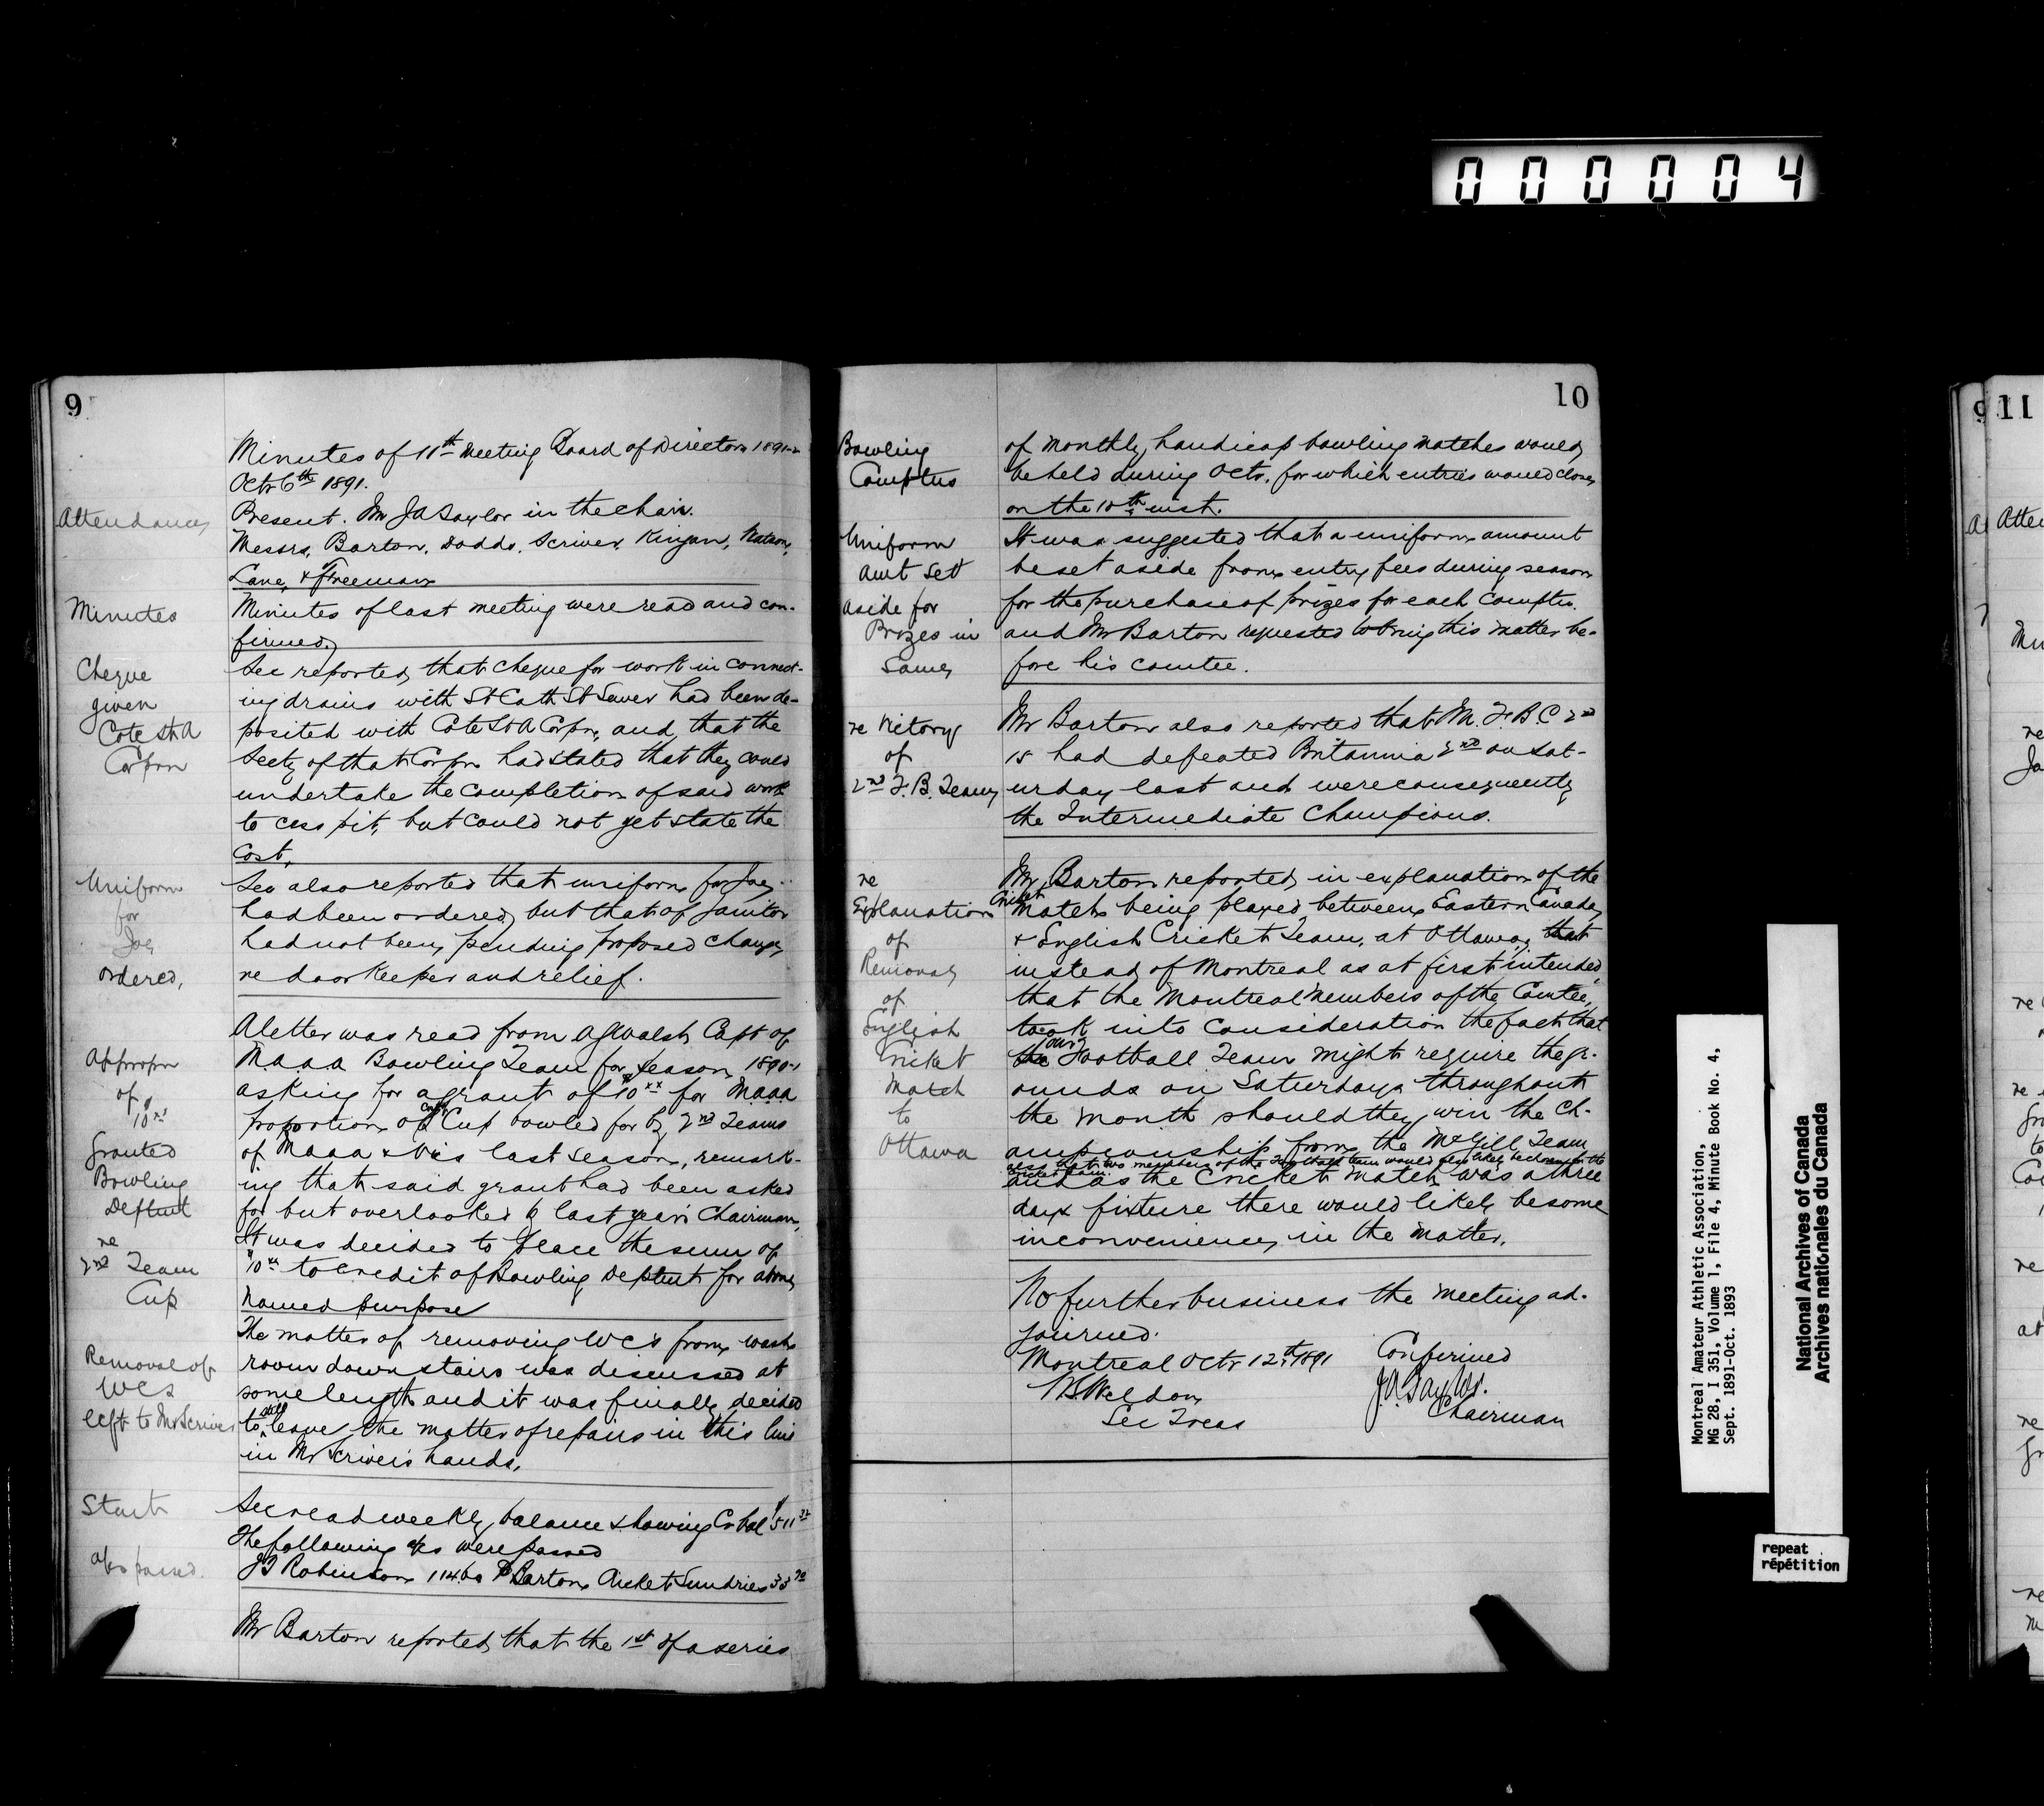 000004
9
Minutes of 11th Meeting Board of Directors 1891-2
Octr 6th 1891.
Attendance
Present. Mr JA Taylor in the chair.
Messrs. Barton, Dodds, Scriver, Kingan, Watson,
Lane, & Freeman
Minutes
Minutes of last meeting were read and con-
firmed,
Cheque
given
Cote St A
Corpn
Sec reported, that cheque for work in connect-
ing drains with St Cath St Sewer had been de-
posited with Cote St A Corpn, and, that the
Secty of that Corpn had stated that they could
undertake the completion of said work
to cess pit, but could not yet state the
Cost,
Uniform
for
Joe
ordered,
Sec also reported that uniform for Joe
had been ordered, but that of Janitor
had not been, pending proposed change,
re door Keeper and relief.
Appropn
of
$10xx
Granted
Bowling
Deptmt
re
2nd Team
Cup
A letter was read from AG Walsh Capt of
MAAA Bowling Team for season 1890-1
asking for a grant of $10xx for MAAA
proportion of Cup bowled for by 2nd Teams
of MAAA & Vics last season, remark-
ing that said grant had been asked
for but overlooked by last year's Chairman,
It was decided to place the sum of
$10xx to credit of Bowling Deptmt for above
named purpose
Removal of
WCs
left to Mr Scriver
The matter of removing WC's from wash
room down stairs was discussed at
some length and it was finally decided
to still leave the matter of repairs in this line
in Mr Scriver's hands,
Statt
Sec read weekly balance showing Cr bal $511
a/cs passed.
The following a/cs were passed
JB Robinson 114.60 P Barton Cricket Sundries 33
Mr Barton reported, that the 1st of a series
10
Bowling
Comptns
of monthly, handicap bowling matches would,
be held during Octr. for which entries would close,
on the 10th inst.
Uniform
amt set
aside for
Prizes in
Same
It was suggested that a uniform amount
be set aside from entry fees during season
for the purchase of prizes for each comptn.
and Mr Barton requested to bring this matter be-
fore his comtee.
re Victory
of
2nd F.B. Team
Mr Barton also reported that M. F. B. C 2nd
15 had defeated Britannia 2nd on Sat-
urday last and were consequently,
the Intermediate Champions.
re
Explanation
of
Removal
of
English
Cricket
Match
to
Ottawa
Mr, Barton reported, in explanation of the
Cricket
Match being played between, Eastern Canada,
& English Cricket Team, at Ottawa, that
instead of Montreal as at first intended,
that the Montreal Members of the Comtee,
took into consideration the fact that
the our Football Team might require the gr-
ounds on Saturdays throughout
the month should they win the Ch-
ampionship from the McGill Team
also that two members of the Football team would also likely be chosen for the
Cricket team
and as the Cricket Match was a three
days fixture there would likely be some
inconvenience, in the matter.
No further business the meeting ad-
journed.
Montreal Octr 12th 1891 Confirmed
WS Weldon J.A. Taylor.
Sec Treas Chairman
Montreal Amateur Athletic Association,
MG 28, I 351, Volume 1, File 4, Minute Book No. 4,
Sept. 1891-Oct. 1893
National Archives of Canada
Archives nationales du Canada
repeat
répétition
9
11